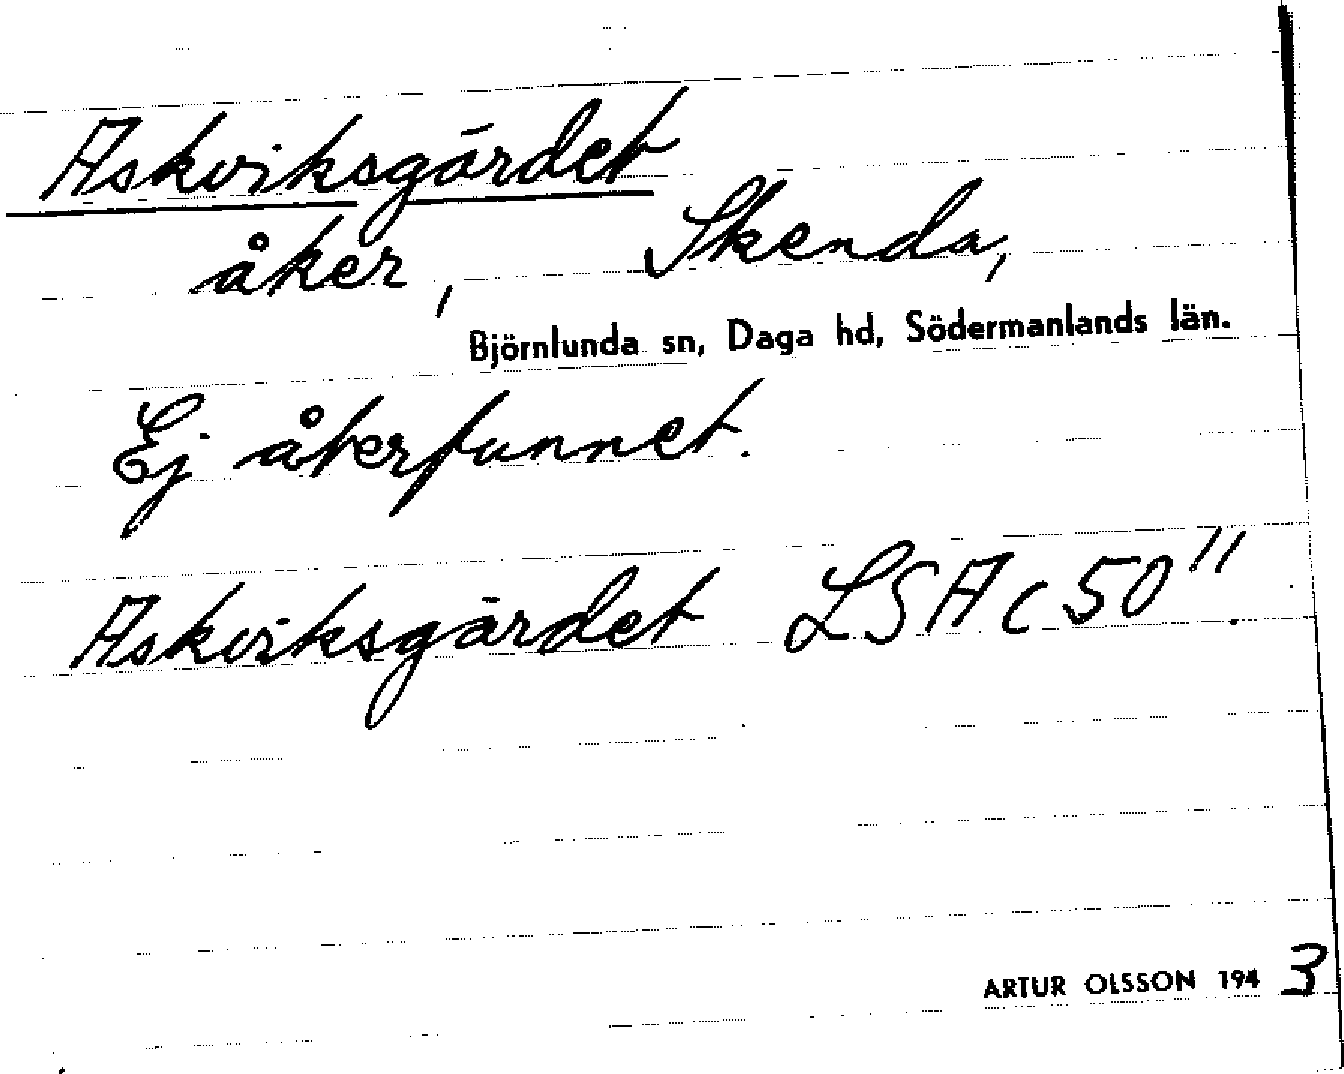 Askviksgärdet
åker, Skenda,
Björnlunda sn, Daga hd, Södermanlands län.
Ej återfunnet.
Askviksgärdet LSA C 50 11/
ARTUR OLSSON 1943